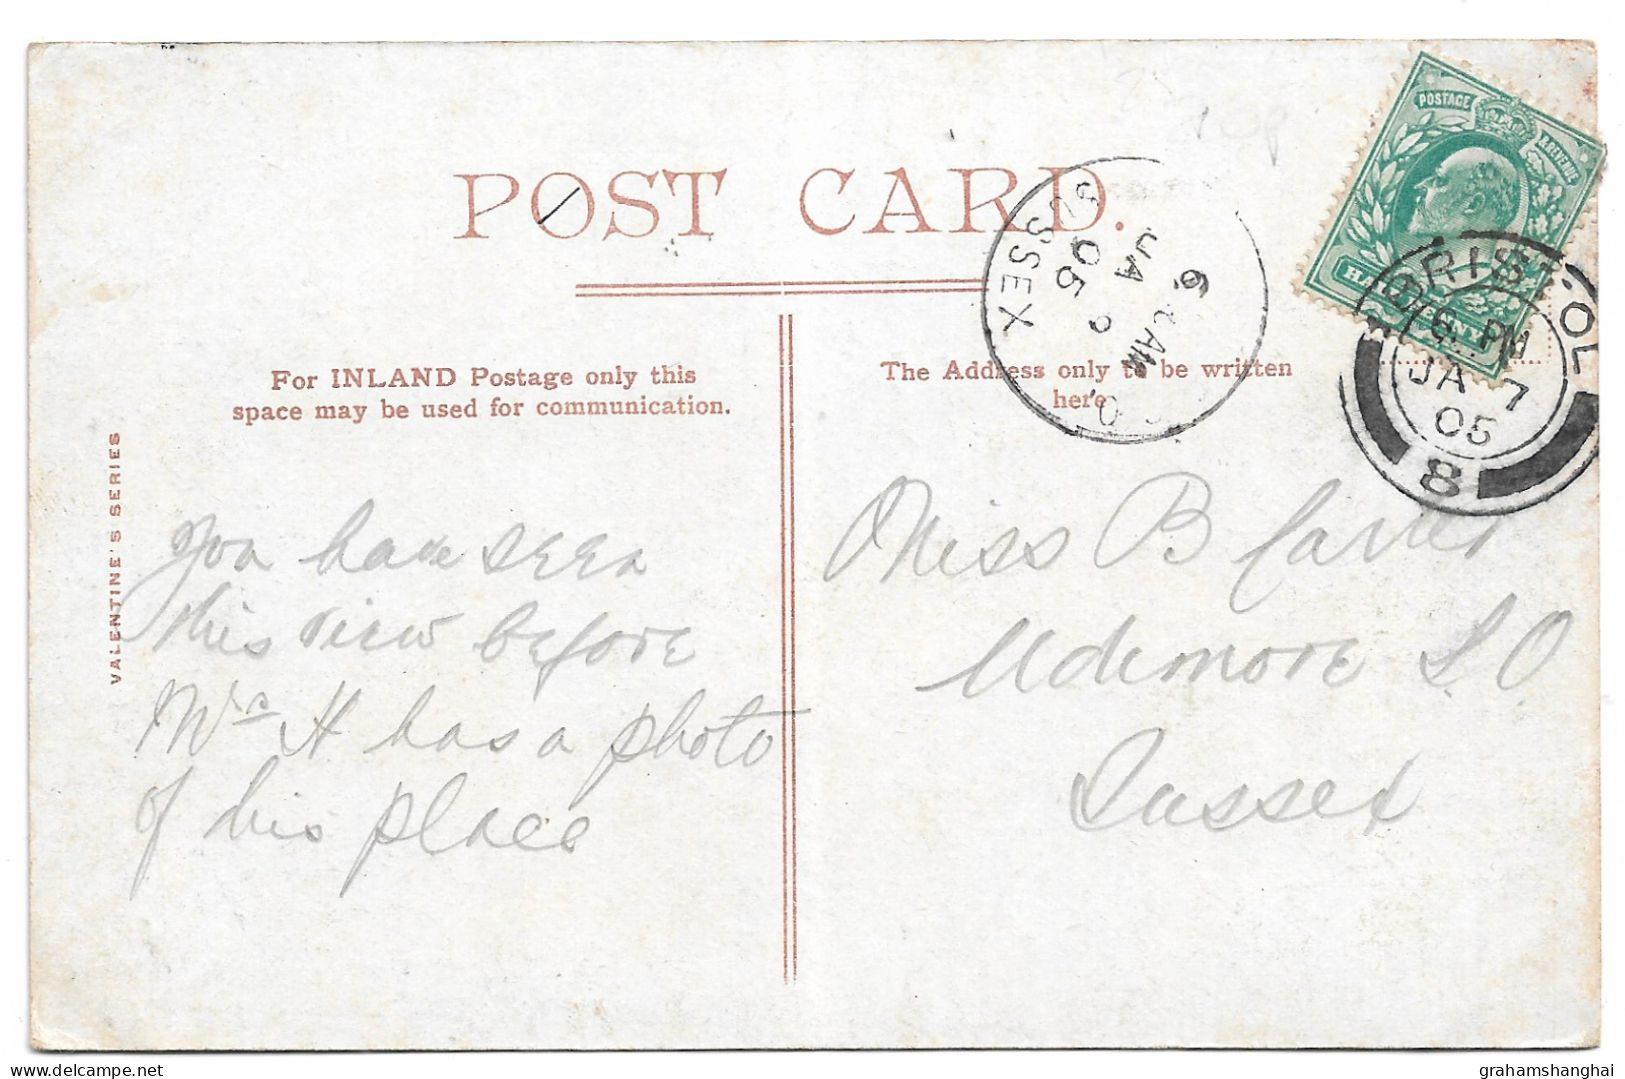 POST CARD.
POSTAGE
& REVENUE
BRISTOL
6. PM
JA 7
05
8
SUSSEX
6 AM
JA 9
05
S.O.
For INLAND Postage only this
space may be used for communication.
The Address only to be written
here.
VALENTINE'S SERIES
You have seen
this view before
Mrs H has a photo
of his place
Miss B Carter
Udimore S.O
Sussex
grahamshanghai